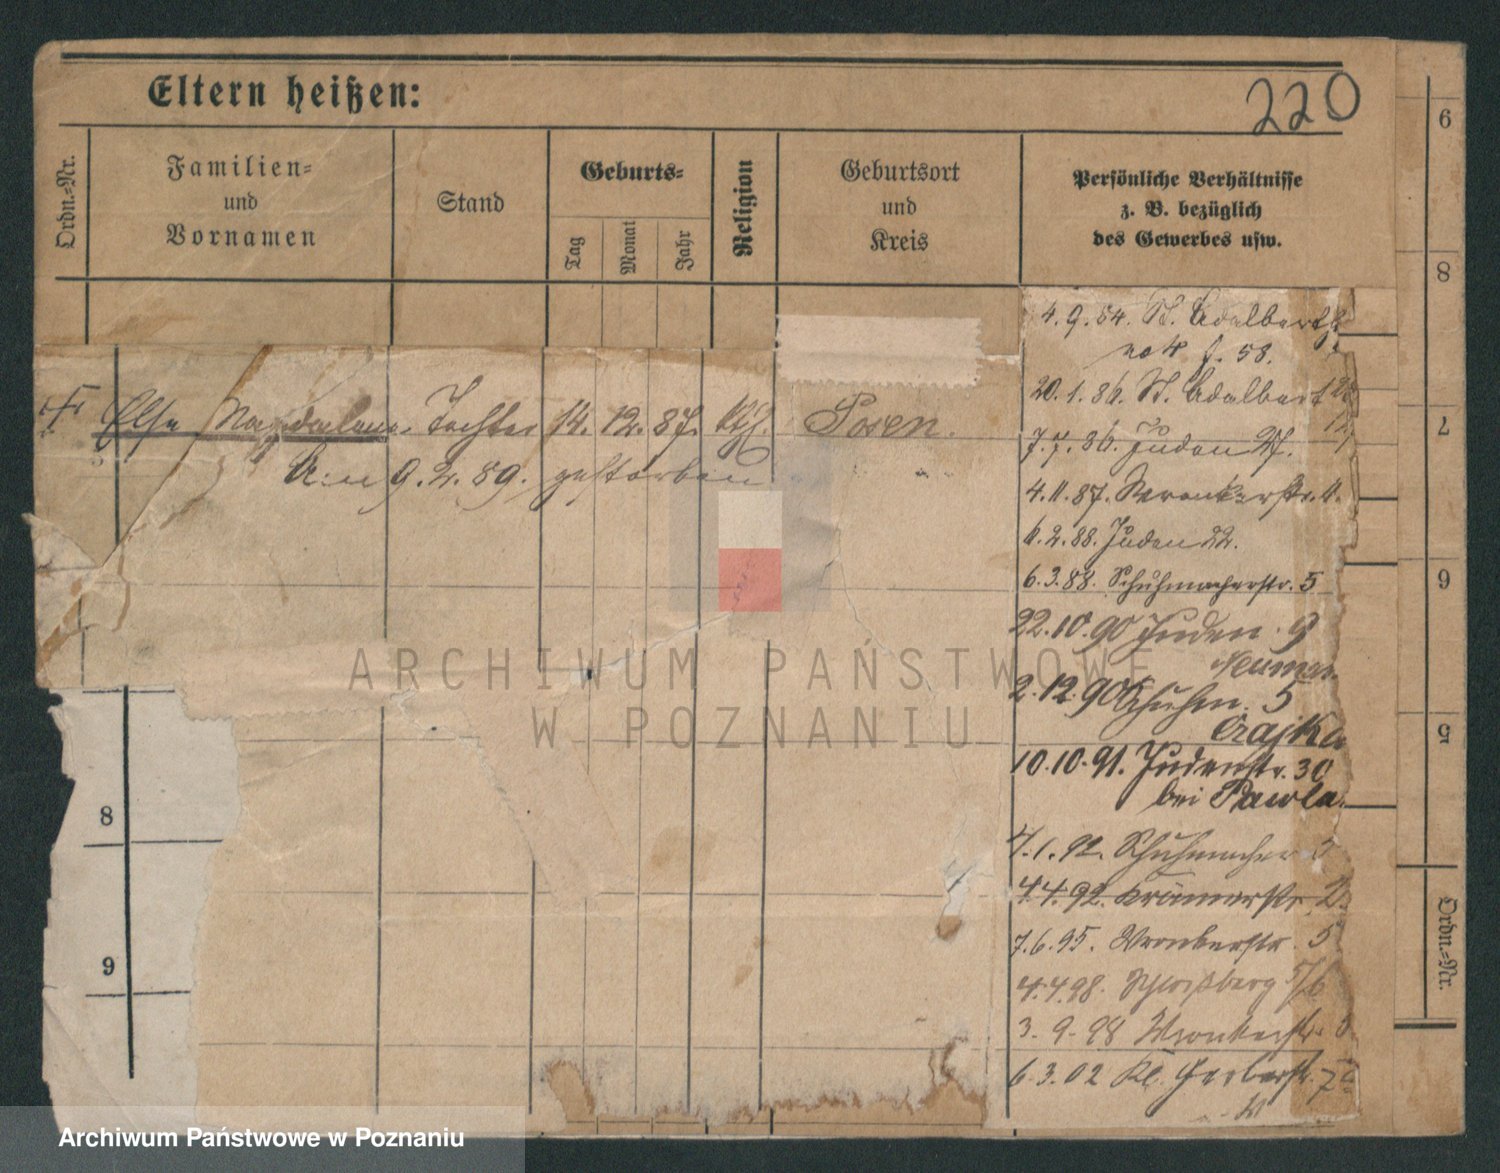 Eltern heißen:
220
Ordn.=Nr.
Familien=
und
Vornamen
Stand
Geburts=
Tag
Monat
Jahr
Religion
Geburtsort
und
Kreis
Persönliche Verhältnisse
z. B. bezüglich
des Gewerbes usw.
Else Magdalena Tochter 14. 12. 87. kth. Posen.
9. 2. 89. gestorben
4. 9. 84. St. Adalbert
58.
20. 1. 86. St. Adalbert
7. 7. 86. Juden 27.
4. 11. 87. Wronkerstr. 4.
6. 2. 88. Juden 22.
6. 3. 88. Schuhmacherstr. 5
22. 10. 90 Juden 9
Neuman
2. 12. 90 Schuhm. 5
Czajka
10. 10. 91. Judenstr. 30
bei Pawla
4. 1. 92. Schuhmacher
4. 4. 92. Krämerstr. 2
7. 6. 95. Wronkerstr. 5
4. 4. 98. Schloßberg 5/6
3. 9. 98 Wronkerstr.
6. 3. 02 Kl. Gerberstr. 7
8
9
6
8
7
6
5
Ordn.=Nr.
ARCHIWUM PAŃSTWOWE
W POZNANIU
Archiwum Państwowe w Poznaniu